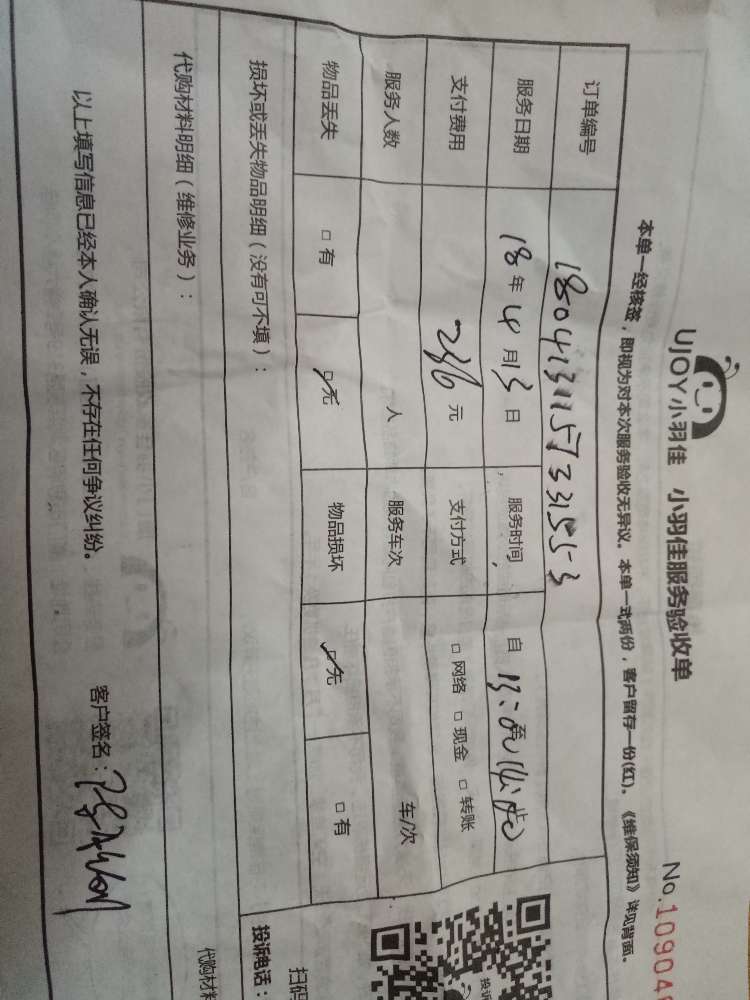 UJOY小羽佳 小羽佳服务验收单
No.10904
本单一经核签，即视为对本次服务验收无异议。本单一式两份，客户留存一份(红)。《维保须知》详见背面。
订单编号
服务日期 18年4月13日 服务时间 自 至
支付费用 236元 支付方式 □网络 □现金 □转账
服务人数 人 服务车次 车/次
物品丢失 □有 □无 物品损坏 □无 □有
损坏或丢失物品明细（没有可不填）：
代购材料明细（维修业务）：
以上填写信息已经本人确认无误，不存在任何争议纠纷。
客户签名：
投诉
扫码
投诉电话：
代购材料